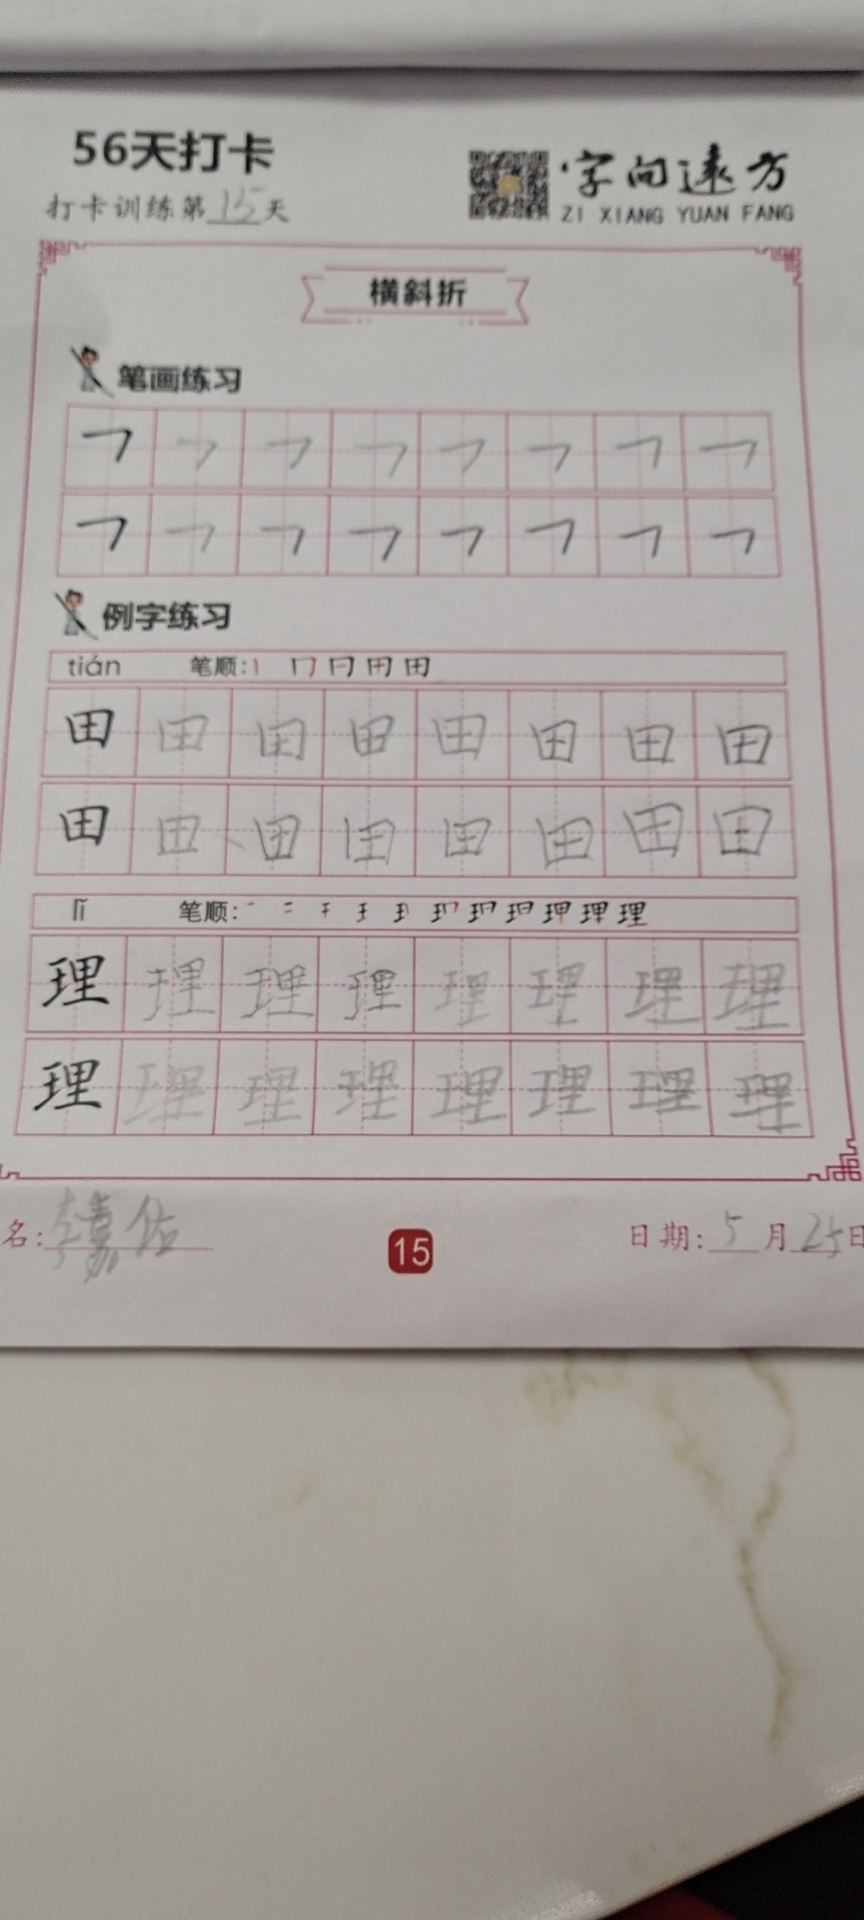 56天打卡
打卡训练第15天
字向远方
ZI XIANG YUAN FANG
横斜折
笔画练习
㇇ ㇇ ㇇ ㇇ ㇇ ㇇ ㇇ ㇇
㇇ ㇇ ㇇ ㇇ ㇇ ㇇ ㇇ ㇇
例字练习
tián 笔顺: 丨 冂 曰 用 田
田 田 田 田 田 田 田 田
田 田 田 田 田 田 田 田
lǐ 笔顺:
理 理 理 理 理 理 理 理
理 理 理 理 理 理 理 理
名: 嘉佑
15
日期: 5月25日